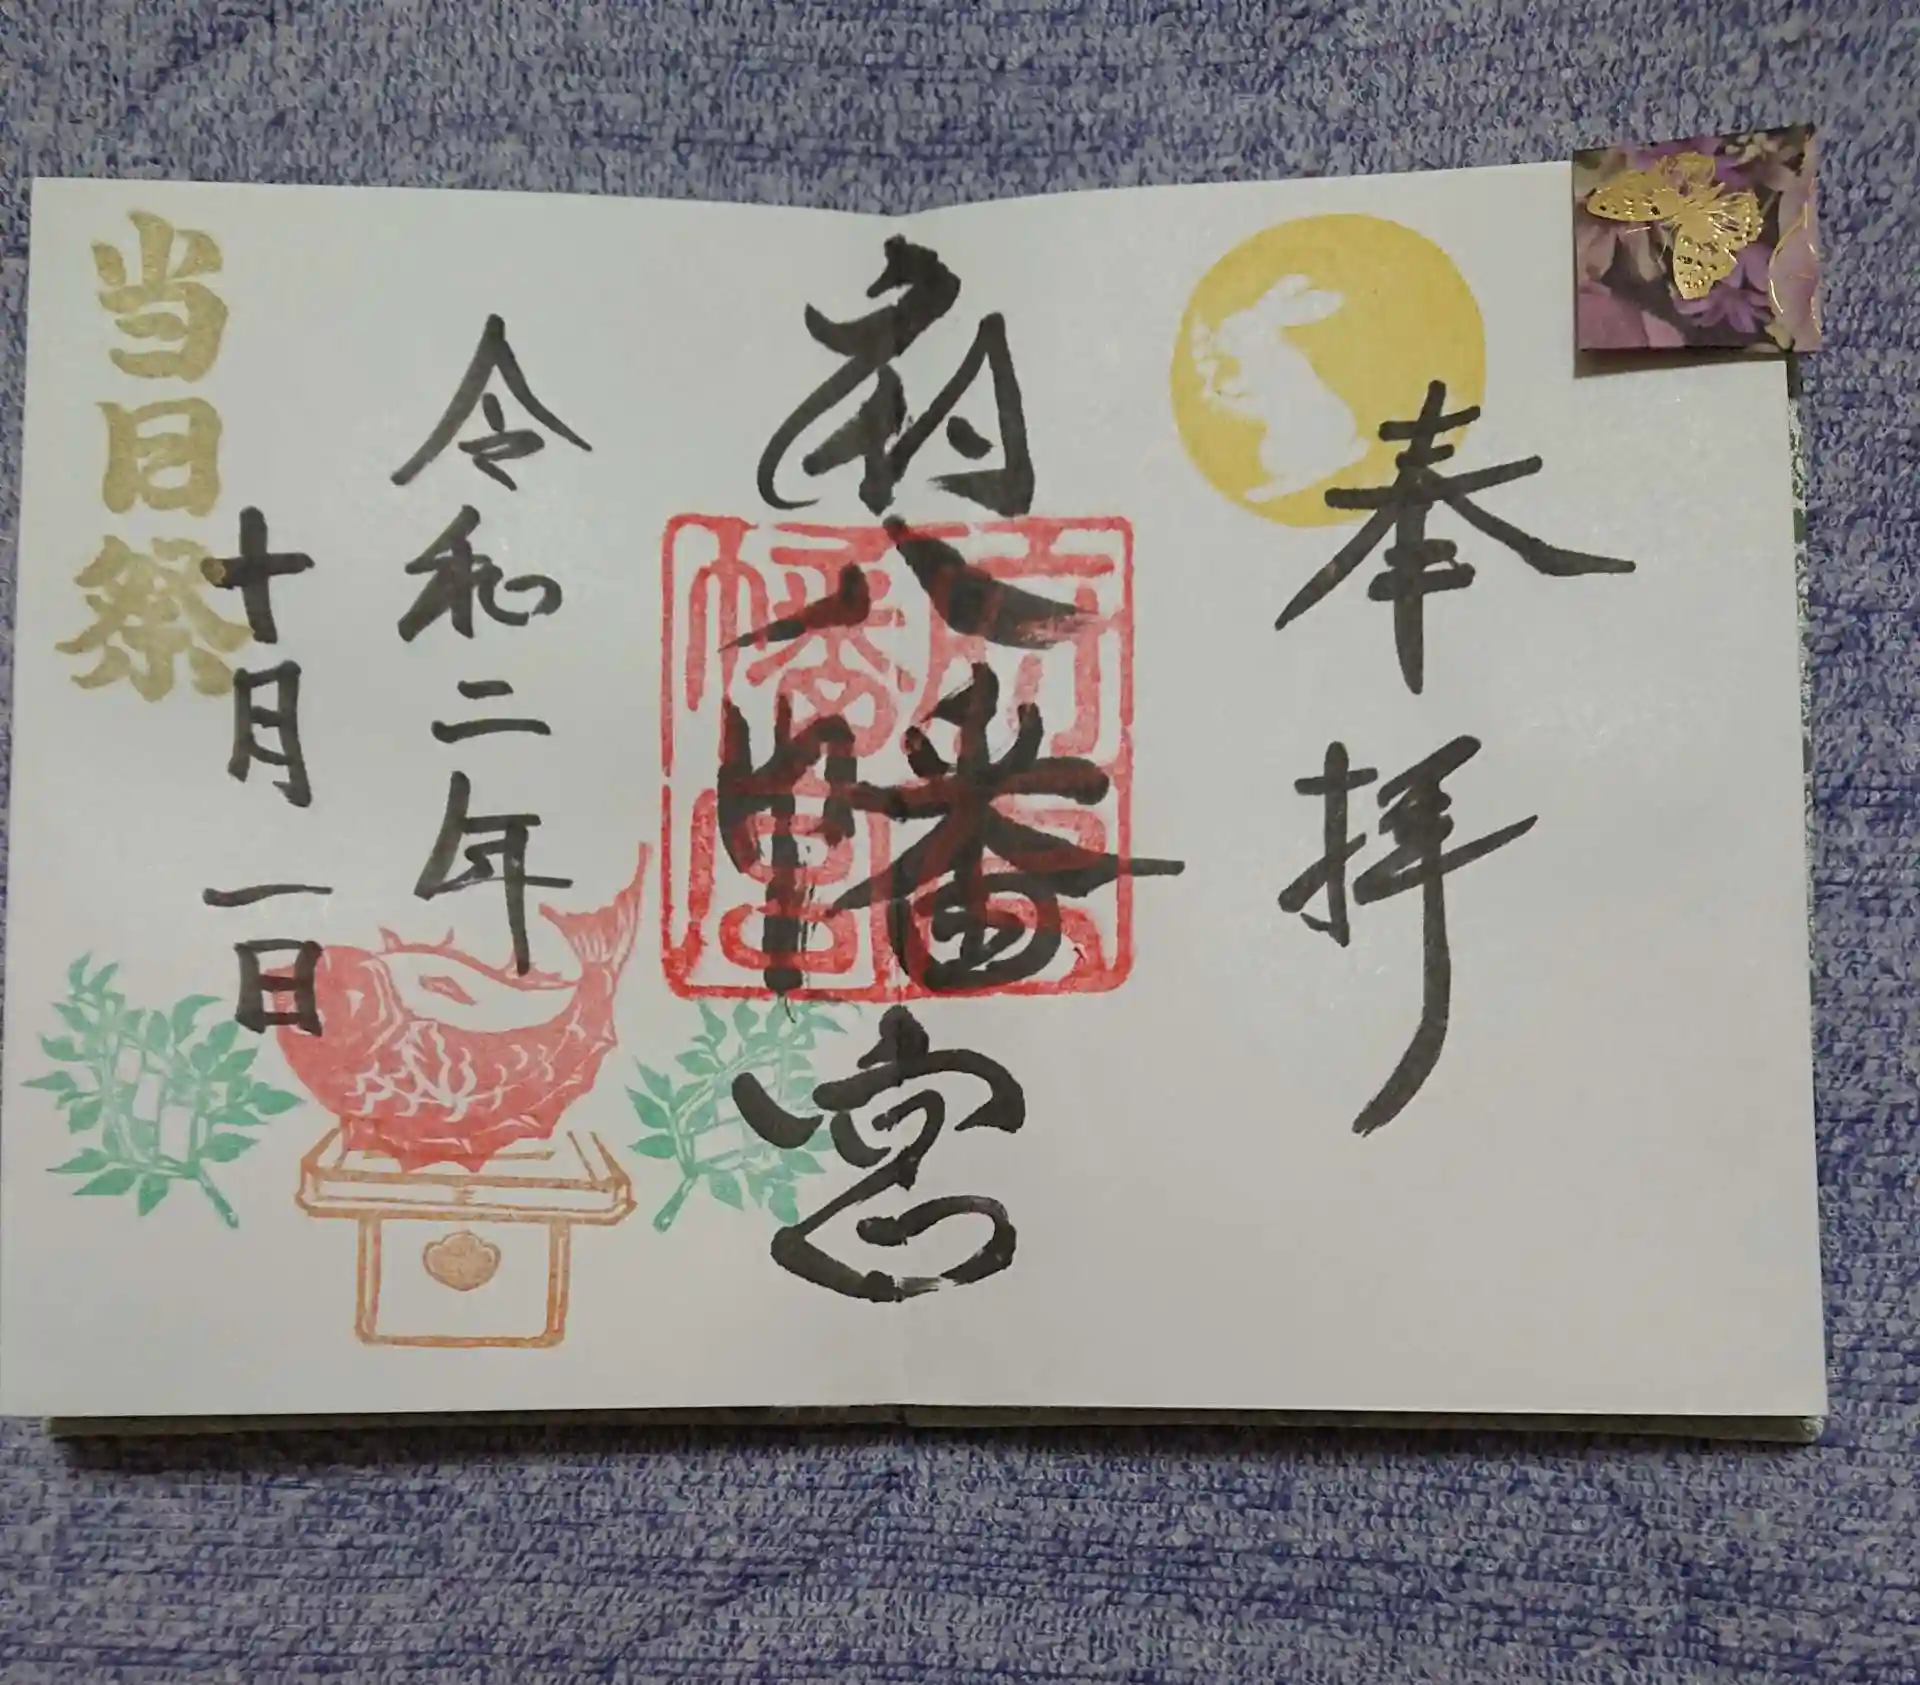 奉拝
府八幡宮
令和二年
十月一日
当日祭